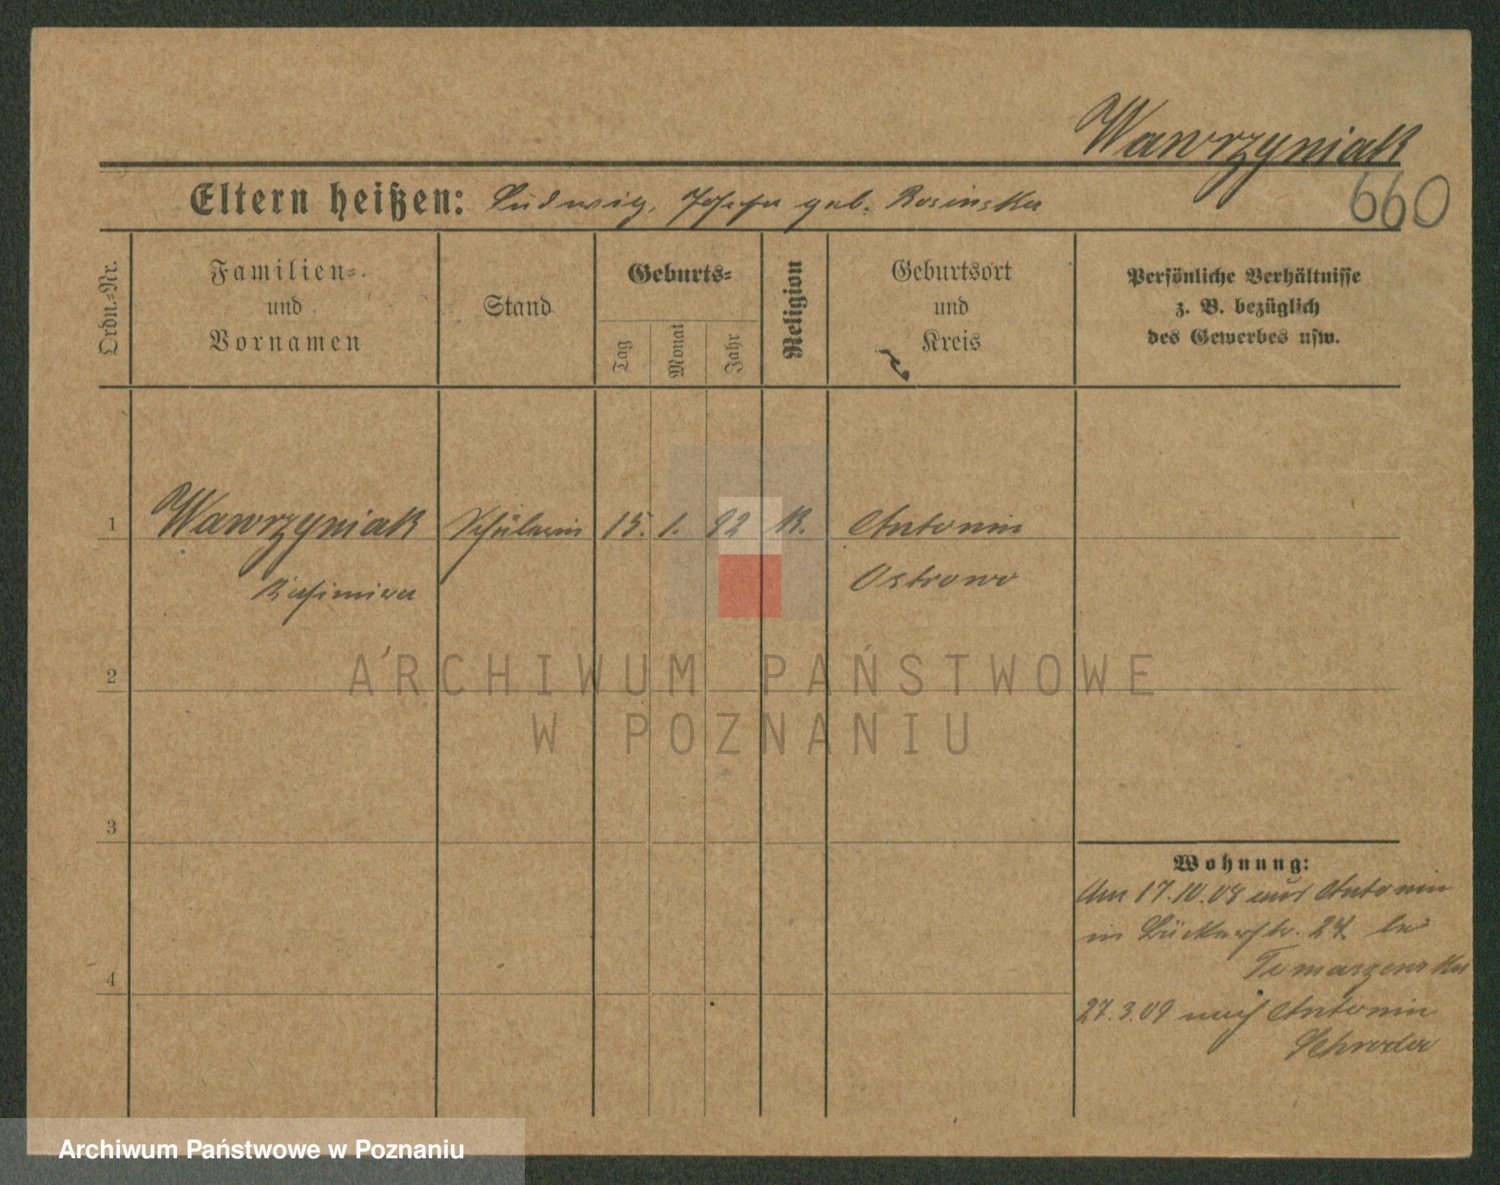 Wawrzyniak
660
Eltern heißen: Ludwig, Josefa geb. Rosinska
Ordn.-Nr.
Familien-
und
Vornamen
Stand
Geburts-
Tag
Monat
Jahr
Religion
Geburtsort
und
Kreis
Persönliche Verhältnisse
z. B. bezüglich
des Gewerbes usw.
1 Wawrzyniak Schülerin 15. 1. 92 K. Antonin
Kasimira Ostrowo
ARCHIWUM PAŃSTWOWE
W POZNANIU
2
3
4
Wohnung:
Am 17.10.08 aus Antonin
in Bäckerstr. 24 bei
Tomaszewska
27.3.09 nach Antonin
Archiwum Państwowe w Poznaniu